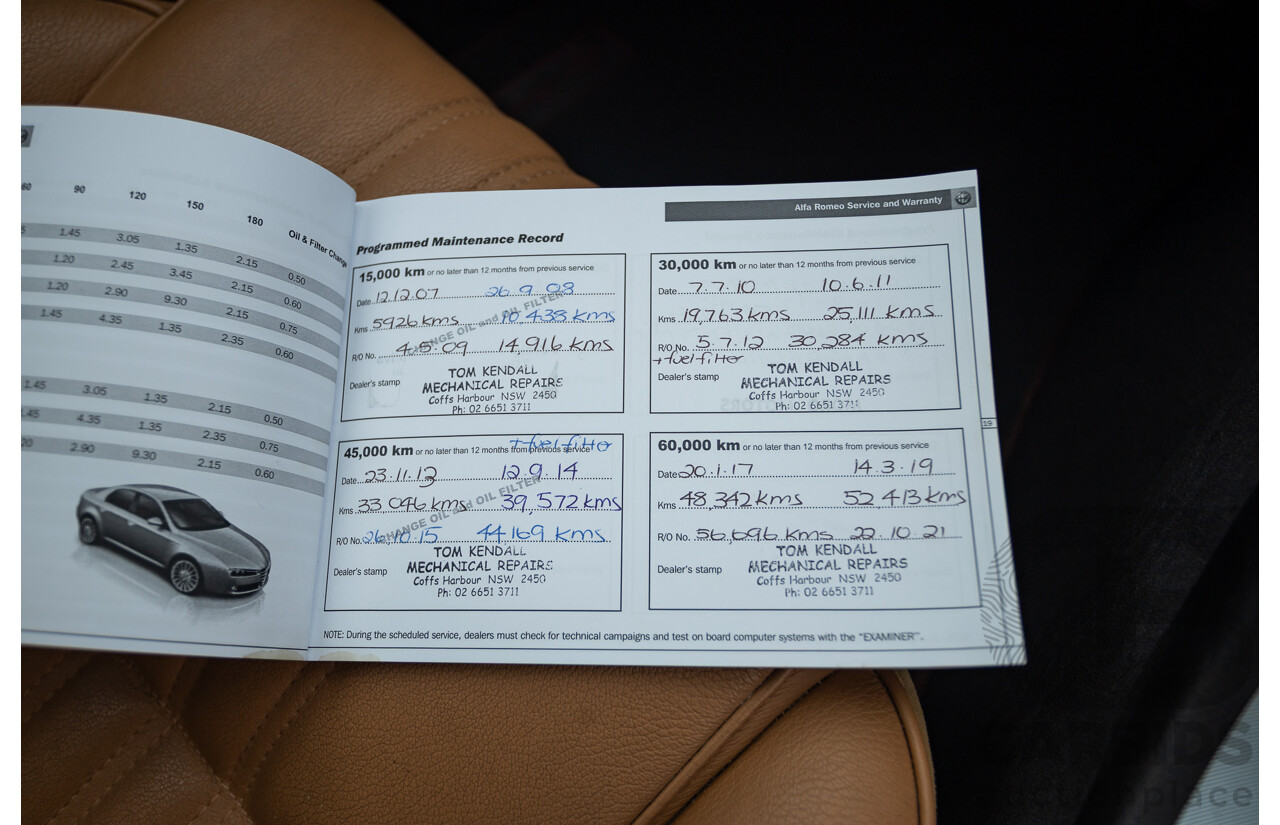 60 90 120 150 180 Oil & Filter Change
1.45 3.05 1.35 2.15 0.50
1.20 2.45 3.45 2.15 0.60
1.20 2.90 9.30 2.15 0.75
1.45 4.35 1.35 2.35 0.60
1.45 3.05 1.35 2.15 0.50
1.45 4.35 1.35 2.35 0.75
2.90 9.30 2.15 0.60
Alfa Romeo Service and Warranty
Programmed Maintenance Record
15,000 km or no later than 12 months from previous service
Date 12.12.07 26.9.08
Kms 5926 kms 10,438 kms
CHANGE OIL and OIL FILTER
R/O No. 4.5.09 14,916 kms
Dealer's stamp
TOM KENDALL
MECHANICAL REPAIRS
Coffs Harbour NSW 2450
Ph: 02 6651 3711
30,000 km or no later than 12 months from previous service
Date 7.7.10 10.6.11
Kms 19,763 kms 25,111 kms
R/O No. 5.7.12 30,284 kms
+fuel filter
Dealer's stamp
TOM KENDALL
MECHANICAL REPAIRS
Coffs Harbour NSW 2450
Ph: 02 6651 3711
+fuel filter
45,000 km or no later than 12 months from previous service
Date 23.11.13 12.9.14
Kms 33 046 kms 39,572 kms
CHANGE OIL and OIL FILTER
R/O No. 26.10.15 44,169 kms
Dealer's stamp
TOM KENDALL
MECHANICAL REPAIRS
Coffs Harbour NSW 2450
Ph: 02 6651 3711
60,000 km or no later than 12 months from previous service
Date 20.1.17 14.3.19
Kms 48,342 kms 52,413 kms
R/O No. 56,696 kms 22.10.21
Dealer's stamp
TOM KENDALL
MECHANICAL REPAIRS
Coffs Harbour NSW 2450
Ph: 02 6651 3711
19
NOTE: During the scheduled service, dealers must check for technical campaigns and test on board computer systems with the "EXAMINER".